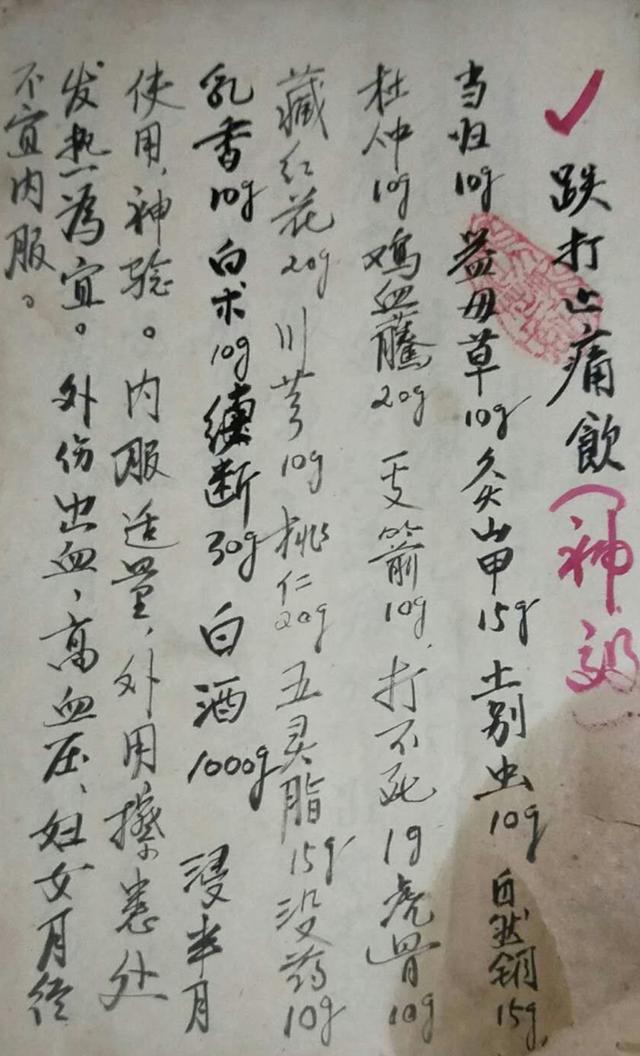 跌打止痛飲（神效
当归10g 益母草10g 灸山甲15g 土别虫10g 自然铜15g
杜仲10g 鸡血藤20g 支箭10g 打不死1g 虎骨10g
藏红花20g 川芎10g 桃仁20g 五灵脂15g 没药10g
乳香10g 白术10g 续断30g 白酒1000g 浸半月
使用，神验。内服适量，外用擦患处
发热為宜。外伤出血，高血压，妇女月经
不宜内服。